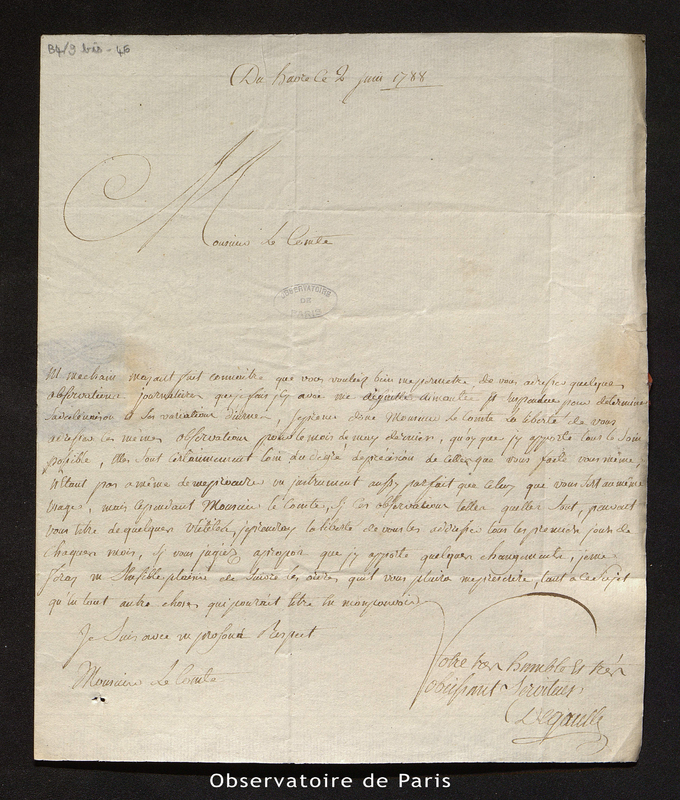 B4/9 bis - 46
Du havre le 2 juin 1788
Monsieur Le Comte
OBSERVATOIRE
DE
PARIS
M. mechain mayant fait connoitre que vous vouliez bien me permettre de vous adresser quelques
observations journalieres que je fais icy avec une éguille aimantée et suspendue pour determiner
la declinaison et Ses variations diurnes, je prens donc Monsieur Le Comte La liberté de vous
adresser les memes observations pour le mois de may dernier, quoy que j'y apporte tous les Soins
possible, elles sont certainnement loin du degré de précision de celles que vous faite vous même,
n'étant pas a même de me procurer un instrument aussy parfait que celuy que vous sert au même
usages, mais cependant Monsieur le Comte, si ces observations telles quelles sont, pouvoient
vous être de quelques utilités, je prendray la liberté de vous les adresser tous les premiers jours de
chaques mois, si vous jugiez apropos que j'y apporte quelques changements, je me
feray un Sensible plaisir de Suivre les ordres qu'il vous plaira me prescrire tant a ce Sujet
qu'en tout autre choses qui pouroit être en mon pouvoir
Je Suis avec un profond Respect
Monsieur Le Comte
Votre tres humble et tres
obéissant Serviteur
Degaulle
Observatoire de Paris